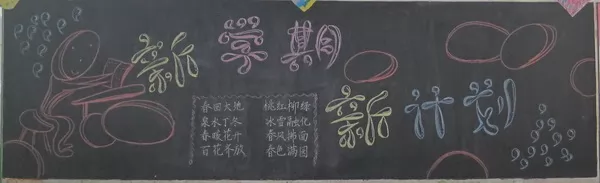 新学期
新计划
春回大地 桃红柳绿
泉水丁冬 冰雪融化
春暖花开 春风拂面
百花齐放 春色满园